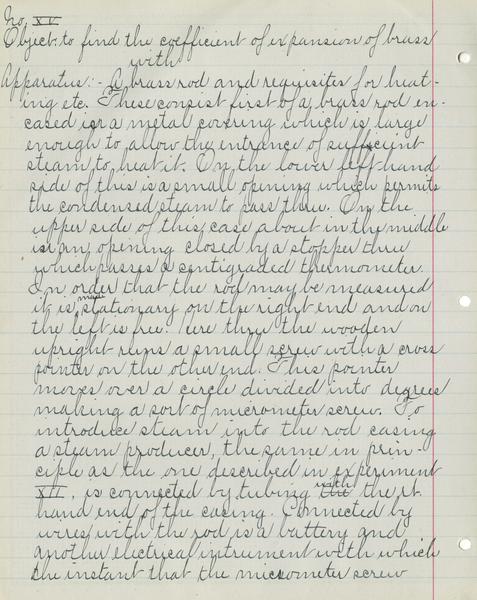 No. XV
Object:- to find the coefficient of expansion of brass
with
Apparatus:- A brass rod and requisites for heat-
ing etc. These consist first of a brass rod en-
cased in a metal covering which is large
enough to allow the entrance of suffecient
steam to heat it. On the lower left hand
side of this is a small opening which permits
the condensed steam to pass thru. On the
upper side of this case about in the middle
is an opening closed by a stopper thru
which passes a centigraded thermometer.
In order that the rod may be measured
it is made stationary on the right end and on
the left is free. thru the wooden
upright runs a small screw with a cross
pointer on the other end. This pointer
moves over a circle divided into degrees
making a sort of micrometer screw. To
introduce steam into the rod casing
a steam producer, the same in prin-
ciple as the one described in experiment
XII, is connected by tubing with the rt.
hand end of the casing. Connected by
wires with the rod is a battery and
another electrical intrument with which
the instant that the micrometer screw